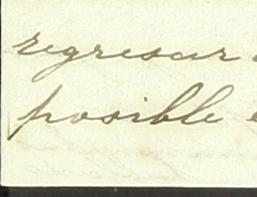 regresar
posible